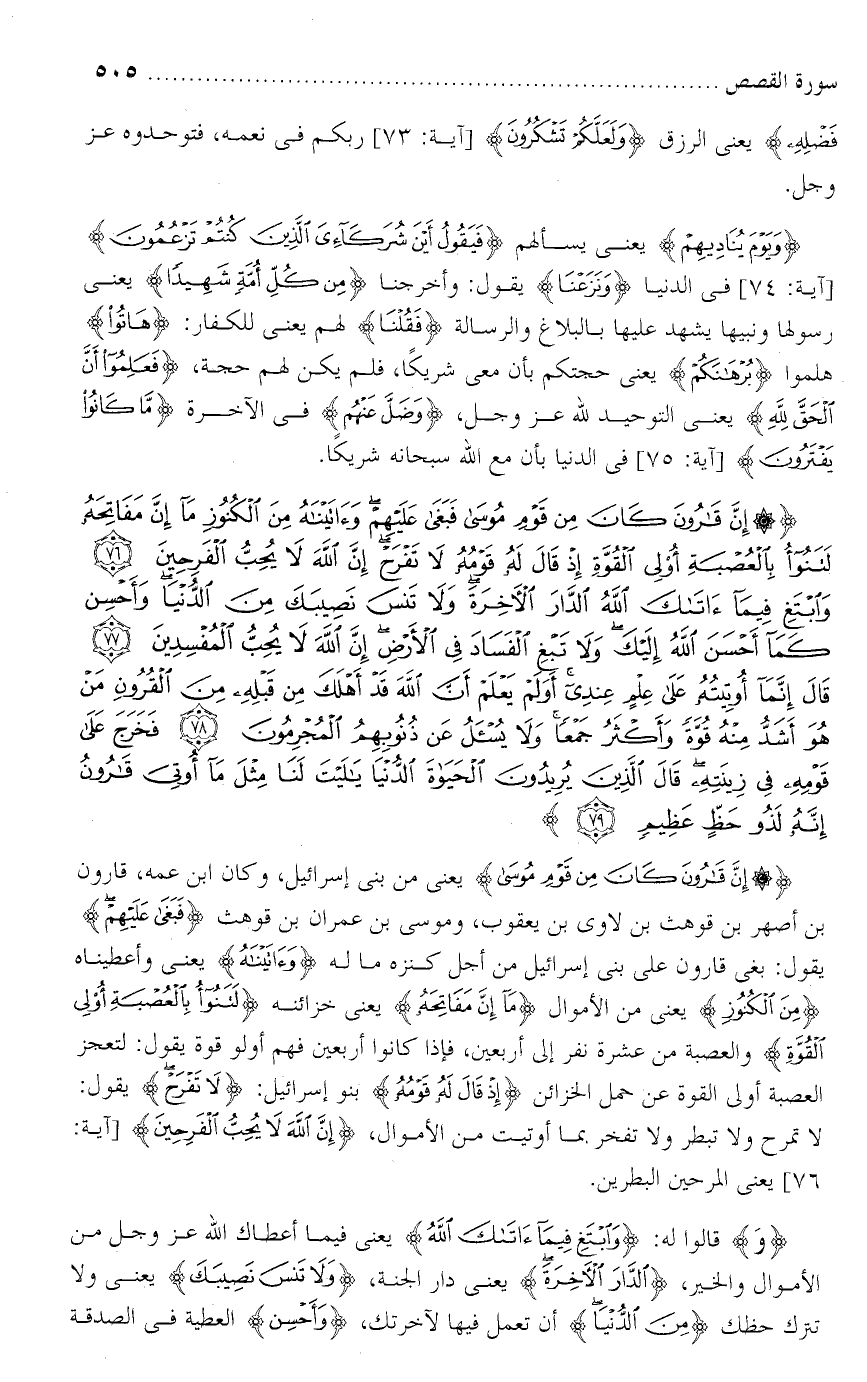 سورة القصص ........................................................................ ٥٠٥
فَضْلِهِۦ﴾ يعنى الرزق ﴿وَلَعَلَّكُمْ تَشْكُرُونَ﴾ [آية: ٧٣] ربكم فى نعمه، فتوحدوه عز
وجل.
﴿وَيَوْمَ يُنَادِيهِمْ﴾ يعنى يسألهم ﴿فَيَقُولُ أَيْنَ شُرَكَآءِىَ ٱلَّذِينَ كُنتُمْ تَزْعُمُونَ﴾
[آية: ٧٤] فى الدنيا ﴿وَنَزَعْنَا﴾ يقول: وأخرجنا ﴿مِن كُلِّ أُمَّةٍ شَهِيدًا﴾ يعنى
رسولها ونبيها يشهد عليها بالبلاغ والرسالة ﴿فَقُلْنَا﴾ لهم يعنى للكفار: ﴿هَاتُوا۟﴾
هلموا ﴿بُرْهَٰنَكُمْ﴾ يعنى حجتكم بأن معى شريكًا، فلم يكن لهم حجة، ﴿فَعَلِمُوٓا۟ أَنَّ
ٱلْحَقَّ لِلَّهِ﴾ يعنى التوحيد لله عز وجل، ﴿وَضَلَّ عَنْهُم﴾ فى الآخرة ﴿مَّا كَانُوا۟
يَفْتَرُونَ﴾ [آية: ٧٥] فى الدنيا بأن مع الله سبحانه شريكًا.
﴿۞ إِنَّ قَٰرُونَ كَانَ مِن قَوْمِ مُوسَىٰ فَبَغَىٰ عَلَيْهِمْ ۖ وَءَاتَيْنَٰهُ مِنَ ٱلْكُنُوزِ مَآ إِنَّ مَفَاتِحَهُۥ
لَتَنُوٓأُ بِٱلْعُصْبَةِ أُو۟لِى ٱلْقُوَّةِ إِذْ قَالَ لَهُۥ قَوْمُهُۥ لَا تَفْرَحْ ۖ إِنَّ ٱللَّهَ لَا يُحِبُّ ٱلْفَرِحِينَ ٧٦
وَٱبْتَغِ فِيمَآ ءَاتَىٰكَ ٱللَّهُ ٱلدَّارَ ٱلْـَٔاخِرَةَ ۖ وَلَا تَنسَ نَصِيبَكَ مِنَ ٱلدُّنْيَا ۖ وَأَحْسِن
كَمَآ أَحْسَنَ ٱللَّهُ إِلَيْكَ ۖ وَلَا تَبْغِ ٱلْفَسَادَ فِى ٱلْأَرْضِ ۖ إِنَّ ٱللَّهَ لَا يُحِبُّ ٱلْمُفْسِدِينَ ٧٧
قَالَ إِنَّمَآ أُوتِيتُهُۥ عَلَىٰ عِلْمٍ عِندِىٓ ۚ أَوَلَمْ يَعْلَمْ أَنَّ ٱللَّهَ قَدْ أَهْلَكَ مِن قَبْلِهِۦ مِنَ ٱلْقُرُونِ مَنْ
هُوَ أَشَدُّ مِنْهُ قُوَّةً وَأَكْثَرُ جَمْعًا ۚ وَلَا يُسْـَٔلُ عَن ذُنُوبِهِمُ ٱلْمُجْرِمُونَ ٧٨ فَخَرَجَ عَلَىٰ
قَوْمِهِۦ فِى زِينَتِهِۦ ۖ قَالَ ٱلَّذِينَ يُرِيدُونَ ٱلْحَيَوٰةَ ٱلدُّنْيَا يَٰلَيْتَ لَنَا مِثْلَ مَآ أُوتِىَ قَٰرُونُ
إِنَّهُۥ لَذُو حَظٍّ عَظِيمٍ ٧٩ ﴾
﴿۞ إِنَّ قَٰرُونَ كَانَ مِن قَوْمِ مُوسَىٰ﴾ يعنى من بنى إسرائيل، وكان ابن عمه، قارون
بن أصهر بن قوهث بن لاوى بن يعقوب، وموسى بن عمران بن قوهث ﴿فَبَغَىٰ عَلَيْهِمْ ۖ﴾
يقول: بغى قارون على بنى إسرائيل من أجل كنزه ماله ﴿وَءَاتَيْنَٰهُ﴾ يعنى وأعطيناه
﴿مِنَ ٱلْكُنُوزِ﴾ يعنى من الأموال ﴿مَآ إِنَّ مَفَاتِحَهُۥ﴾ يعنى خزائنه ﴿لَتَنُوٓأُ بِٱلْعُصْبَةِ أُو۟لِى
ٱلْقُوَّةِ﴾ والعصبة من عشرة نفر إلى أربعين، فإذا كانوا أربعين فهم أولو قوة يقول: لتعجز
العصبة أولى القوة عن حمل الخزائن ﴿إِذْ قَالَ لَهُۥ قَوْمُهُۥ﴾ بنو إسرائيل: ﴿لَا تَفْرَحْ ۖ﴾ يقول:
لا تمرح ولا تبطر ولا تفخر بما أوتيت من الأموال، ﴿إِنَّ ٱللَّهَ لَا يُحِبُّ ٱلْفَرِحِينَ﴾ [آية:
٧٦] يعنى المرحين البطرين.
﴿وَ﴾ قالوا له: ﴿وَٱبْتَغِ فِيمَآ ءَاتَىٰكَ ٱللَّهُ﴾ يعنى فيما أعطاك الله عز وجل من
الأموال والخير، ﴿ٱلدَّارَ ٱلْـَٔاخِرَةَ ۖ﴾ يعنى دار الجنة، ﴿وَلَا تَنسَ نَصِيبَكَ﴾ يعنى ولا
تترك حظك ﴿مِنَ ٱلدُّنْيَا ۖ﴾ أن تعمل فيها لآخرتك، ﴿وَأَحْسِن﴾ العطية فى الصدقة